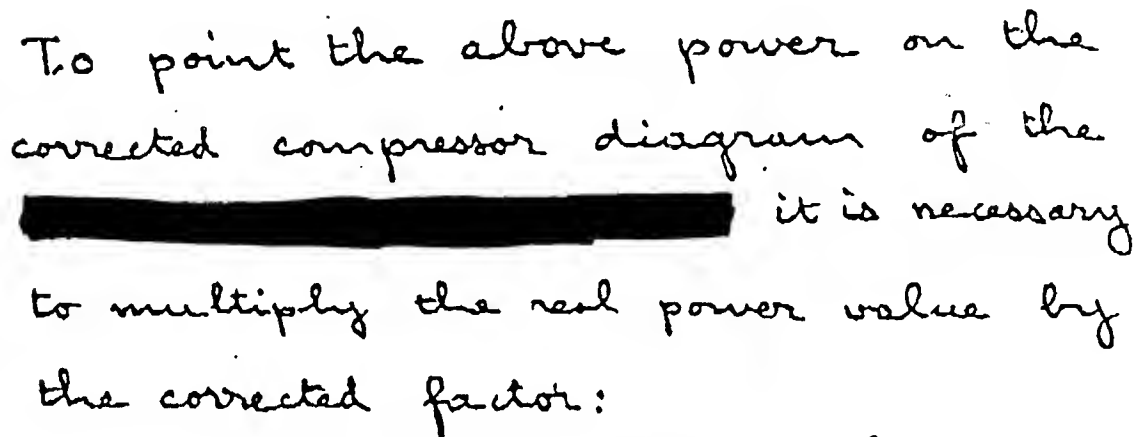 To point the above power on the
corrected compressor diagram of the
it is necessary
to multiply the real power value by
the corrected factor: